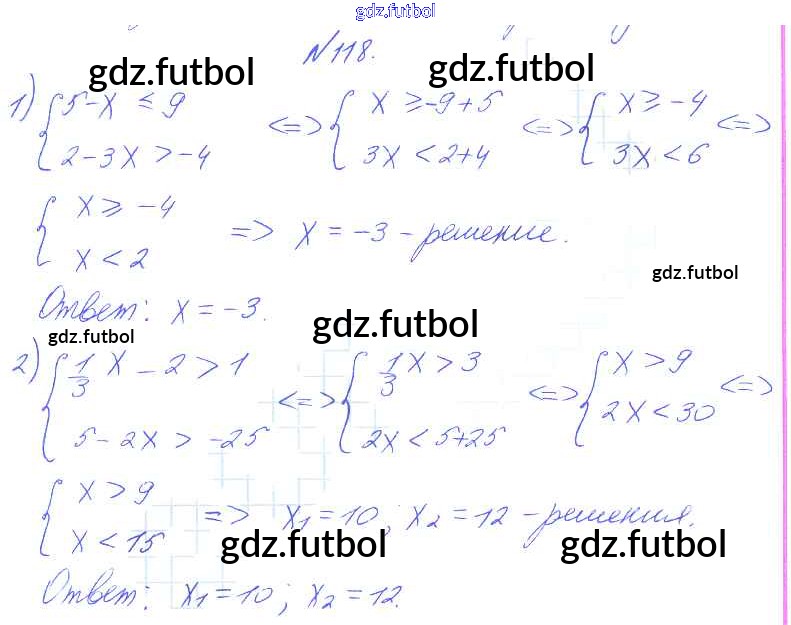 gdz.futbol
№118.
gdz.futbol gdz.futbol
1) { 5-x ≤ 9 <=> { x ≥ -9+5 <=> { x ≥ -4 <=>
2-3x > -4 3x < 2+4 3x < 6
{ x ≥ -4 => x = -3 - решение.
x < 2
gdz.futbol
Ответ: x = -3.
gdz.futbol gdz.futbol
2) { 1/3 x - 2 > 1 <=> { 1/3 x > 3 <=> { x > 9 <=>
5-2x > -25 2x < 5+25 2x < 30
{ x > 9 => x₁ = 10; x₂ = 12 - решения.
x < 15
gdz.futbol gdz.futbol
Ответ: x₁ = 10; x₂ = 12.